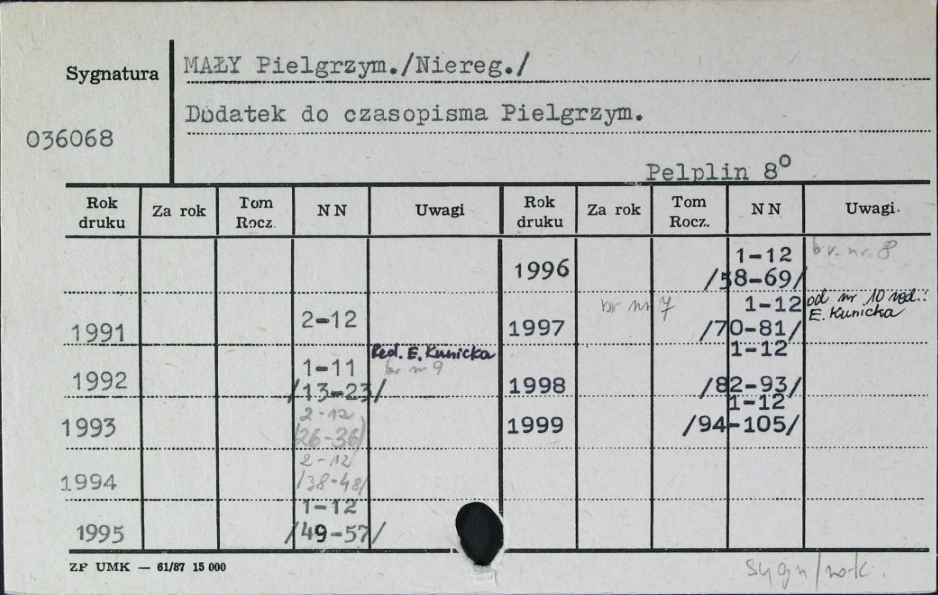 Sygnatura
MAŁY Pielgrzym./Niereg./
Dodatek do czasopisma Pielgrzym.
036068
Pelplin 8⁰
Rok druku Za rok Tom Rocz. N N Uwagi Rok druku Za rok Tom Rocz. N N Uwagi
1996 1-12 /58-69/ br. nr. 8
1991 2-12
1997 br nr 7 1-12 /70-81/ od nr 10 red.: E. Kunicka
1992 1-11 /13-23/ Red. E. Kunicka br nr 9
1998 1-12 /82-93/
1993 2-12 /26-36/
1999 1-12 /94-105/
1994 2-12 /38-48/
1995 1-12 /49-57/
ZP UMK — 61/87 15 000
sygn/rok.